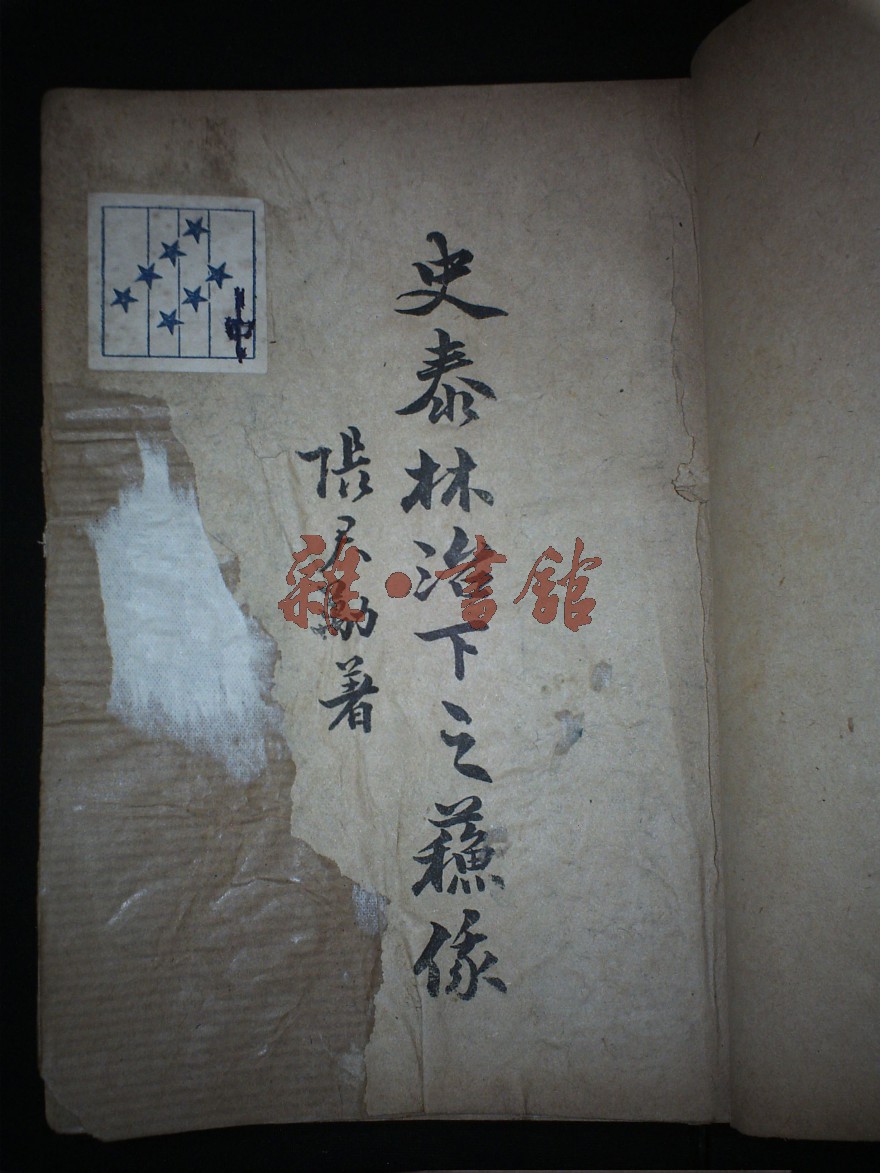 史泰林治下之蘇俄
張君勱著
雜·書館
中